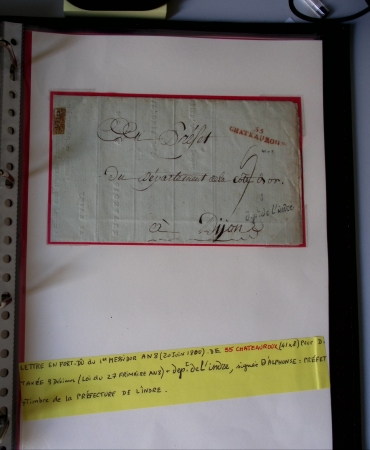 35
CHATEAUROUX
Au Préfet
Du Département de la Côte d'or.
dep.t de l'indre
à Dijon
LETTRE EN PORT-DÛ DU 1er MESSIDOR AN 8 (20 JUIN 1800). DE 35 CHATEAUROUX (41x8) POUR D
TAXÉE 9 Décimes (Loi du 27 FRIMAIRE AN 8) + dept. de l'indre, signée D'ALPHONSE = PRÉFET
+Timbre de la PRÉFECTURE DE L'INDRE.